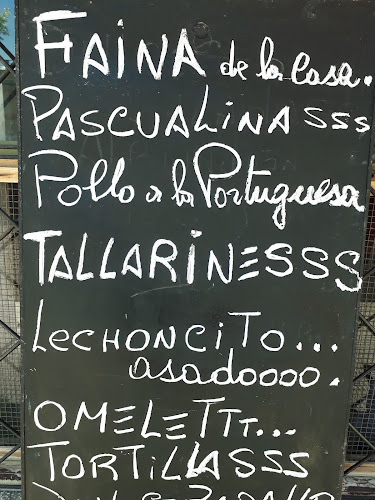 FAINA de la Casa.
PASCUALINASSS
Pollo a la Portuguesa
TALLARINESSS
LECHONCITO...
asadoooo.
OMELETTT...
TORTILLASSS